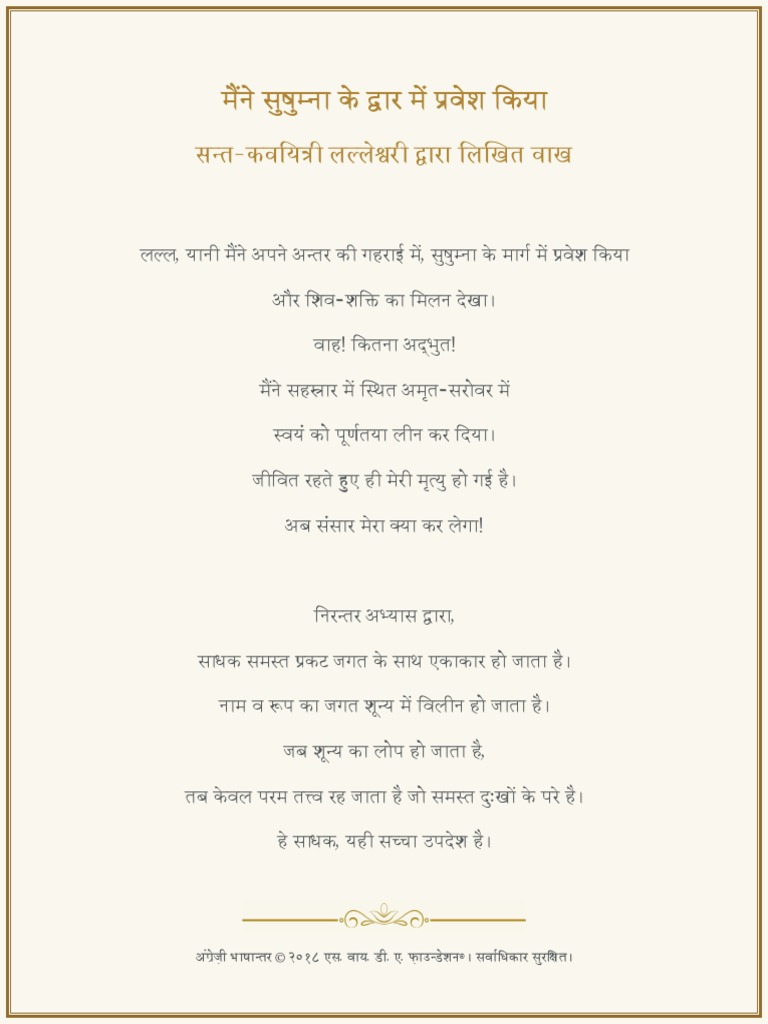 मैंने सुषुम्ना के द्वार में प्रवेश किया
सन्त-कवयित्री लल्लेश्वरी द्वारा लिखित वाख
लल्ल, यानी मैंने अपने अन्तर की गहराई में, सुषुम्ना के मार्ग में प्रवेश किया
और शिव-शक्ति का मिलन देखा।
वाह! कितना अद्‌भुत!
मैंने सहस्रार में स्थित अमृत-सरोवर में
स्वयं को पूर्णतया लीन कर दिया।
जीवित रहते हुए ही मेरी मृत्यु हो गई है।
अब संसार मेरा क्या कर लेगा!
निरन्तर अभ्यास द्वारा,
साधक समस्त प्रकट जगत के साथ एकाकार हो जाता है।
नाम व रूप का जगत शून्य में विलीन हो जाता है।
जब शून्य का लोप हो जाता है,
तब केवल परम तत्त्व रह जाता है जो समस्त दुःखों के परे है।
हे साधक, यही सच्चा उपदेश है।
अंग्रेज़ी भाषान्तर © २०१८ एस. वाय. डी. ए. फ़ाउन्डेशन®। सर्वाधिकार सुरक्षित।